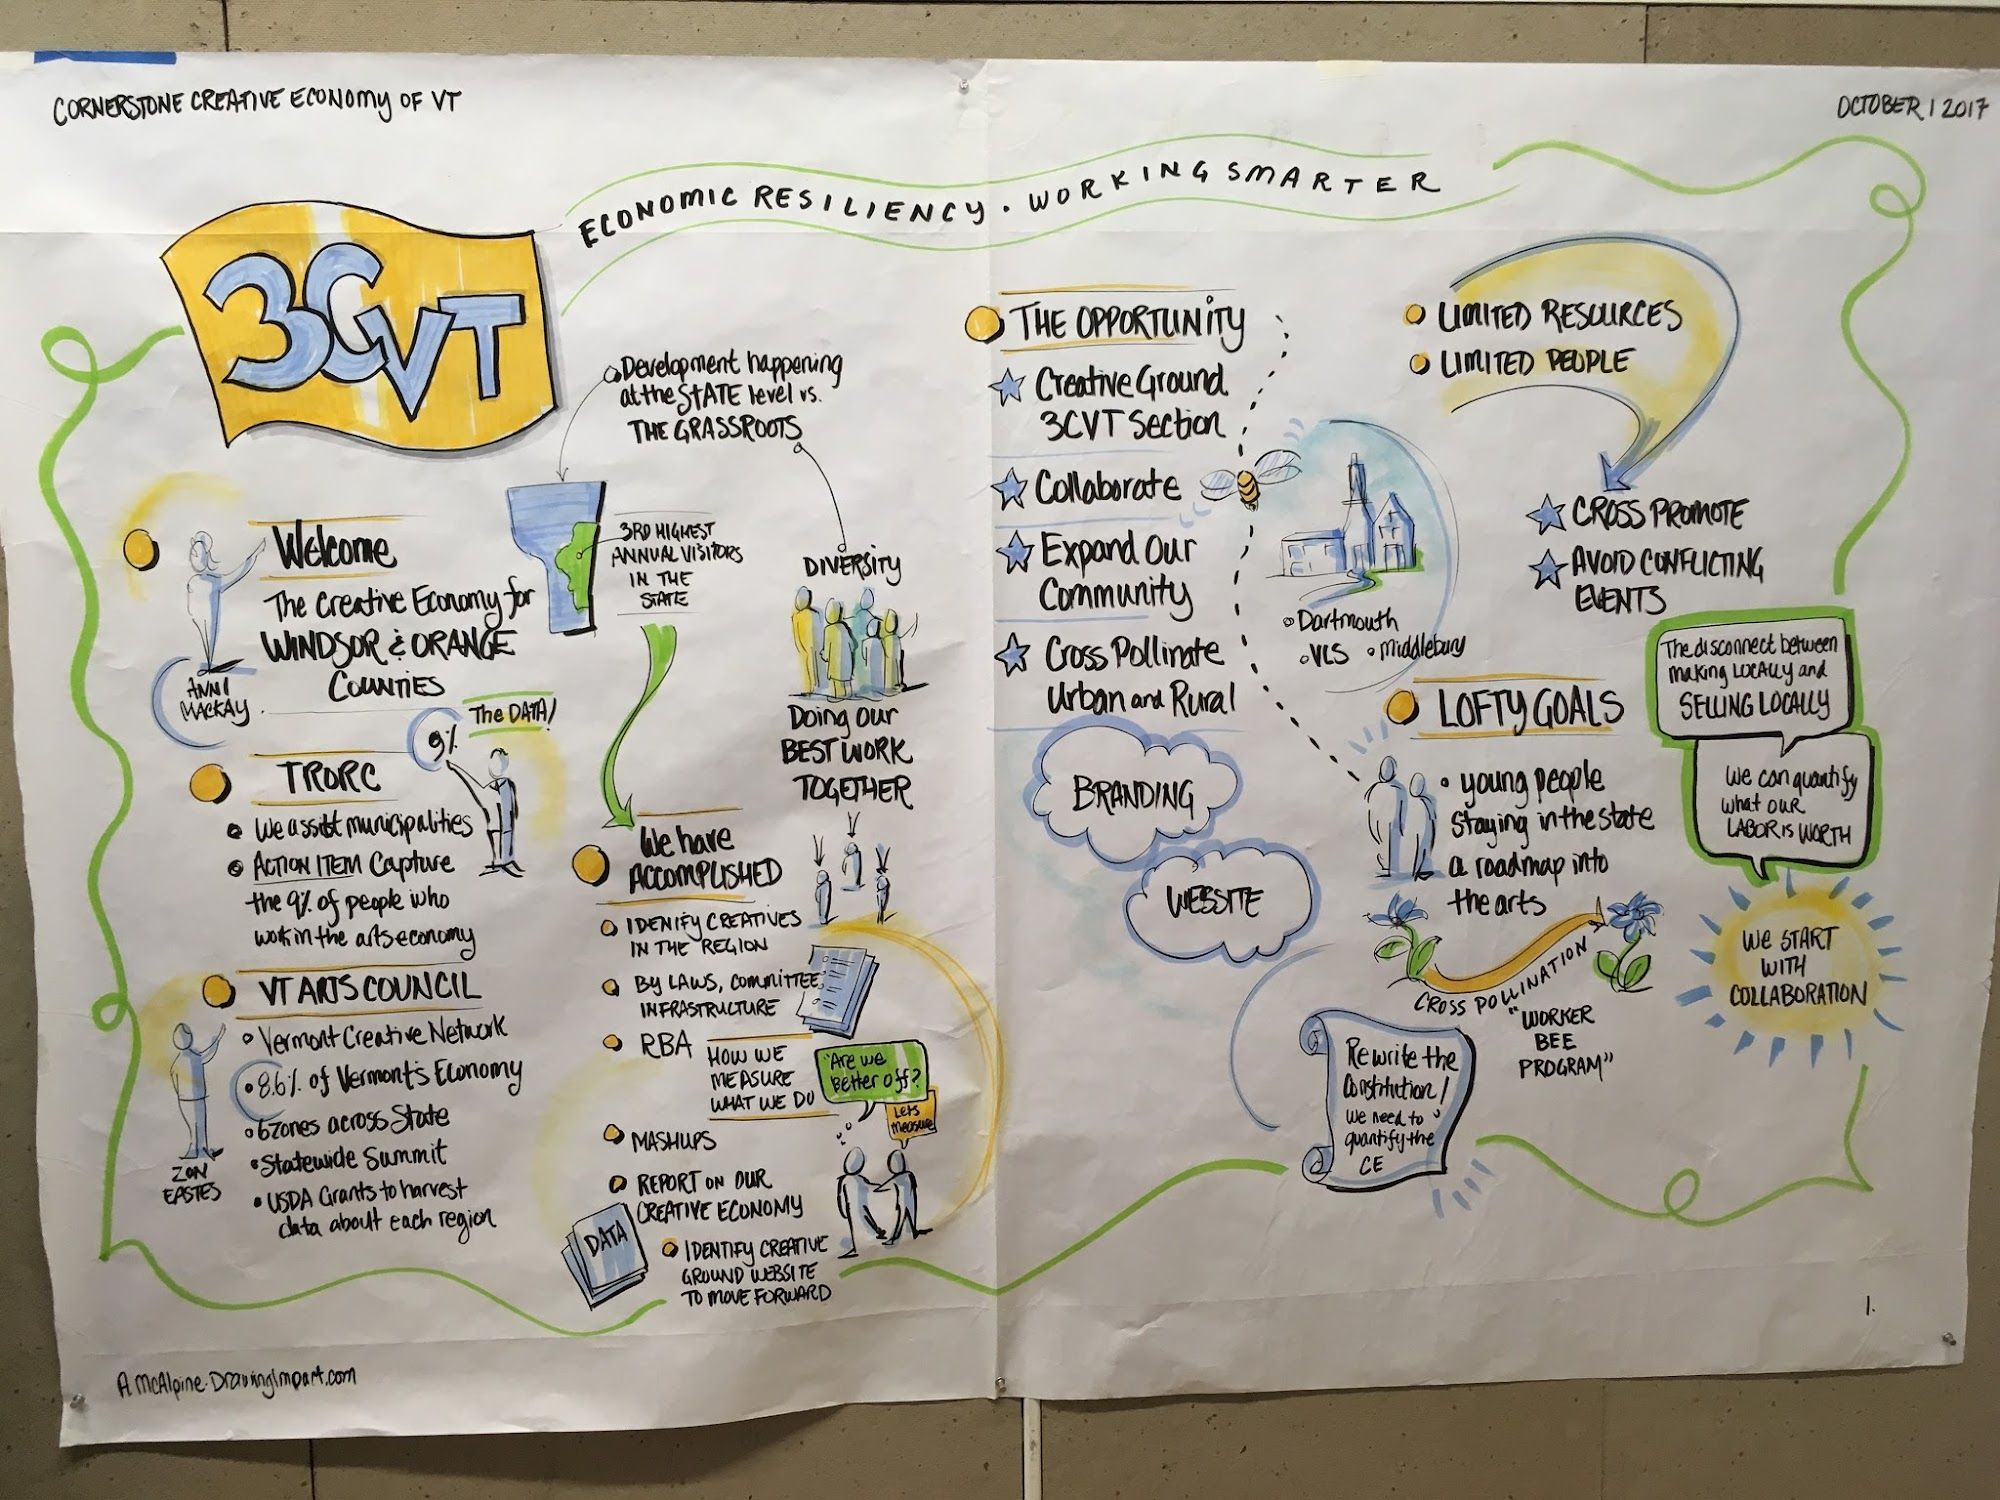 CORNERSTONE CREATIVE ECONOMY OF VT
OCTOBER 1 2017
ECONOMIC RESILIENCY. WORKING SMARTER
3CVT
Development happening
at the STATE level vs.
THE GRASSROOTS
3RD HIGHEST
ANNUAL VISITORS
IN THE
STATE
DIVERSITY
Doing our
BEST WORK
TOGETHER
Welcome
The Creative Economy for
WINDSOR & ORANGE
COUNTIES
ANNI
MACKAY
The DATA!
9%
TRORC
We assist municipalities
ACTION ITEM Capture
the 9% of people who
work in the arts economy
VT ARTS COUNCIL
Vermont Creative Network
8.6% of Vermont's Economy
6 zones across State
Statewide Summit
USDA Grants to harvest
data about each region
ZON
EASTES
We have
ACCOMPLISHED
IDENIFY CREATIVES
IN THE REGION
BY LAWS, COMMITTEE,
INFRASTRUCTURE
RBA
HOW WE
MEASURE
WHAT WE DO
"Are we
better off?
Lets
measure
MASHUPS
REPORT ON OUR
CREATIVE ECONOMY
DATA
IDENTIFY CREATIVE
GROUND WEBSITE
TO MOVE FORWARD
THE OPPORTUNITY
Creative Ground
3CVT Section
Collaborate
Expand Our
Community
Cross Pollinate
Urban and Rural
BRANDING
WEBSITE
LIMITED RESOURCES
LIMITED PEOPLE
CROSS PROMOTE
AVOID CONFLICTING
EVENTS
Dartmouth
VLS Middlebury
LOFTY GOALS
young people
staying in the state
a roadmap into
the arts
CROSS POLLINATION
"WORKER
BEE
PROGRAM"
Rewrite the
Constitution!
We need to
quantify the
CE
The disconnect between
making LOCALLY and
SELLING LOCALLY
We can quantify
what our
LABOR is WORTH
WE START
WITH
COLLABORATION
1.
A McAlpine. DrawingImpact.com